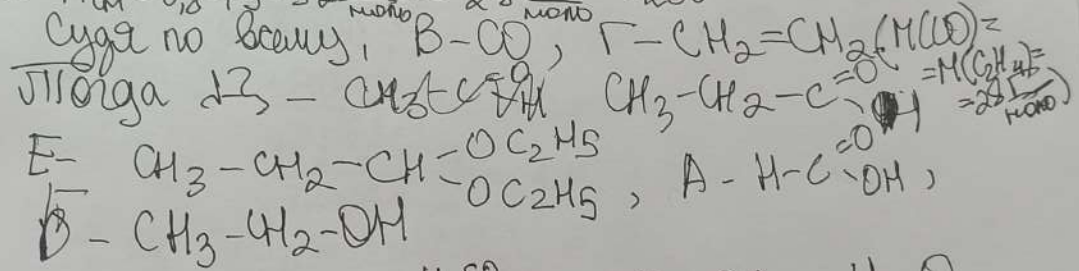 моль моль
Судя по всему, В-CO, Г-CH2=CH2 (M(CO)=
=M(C2H4)=
=28 г/моль)
Тогда Д - CH3-CH2-C=O H
Е- CH3-CH2-CH-OC2H5 -OC2H5, А-H-C=O OH,
Б- CH3-CH2-OH